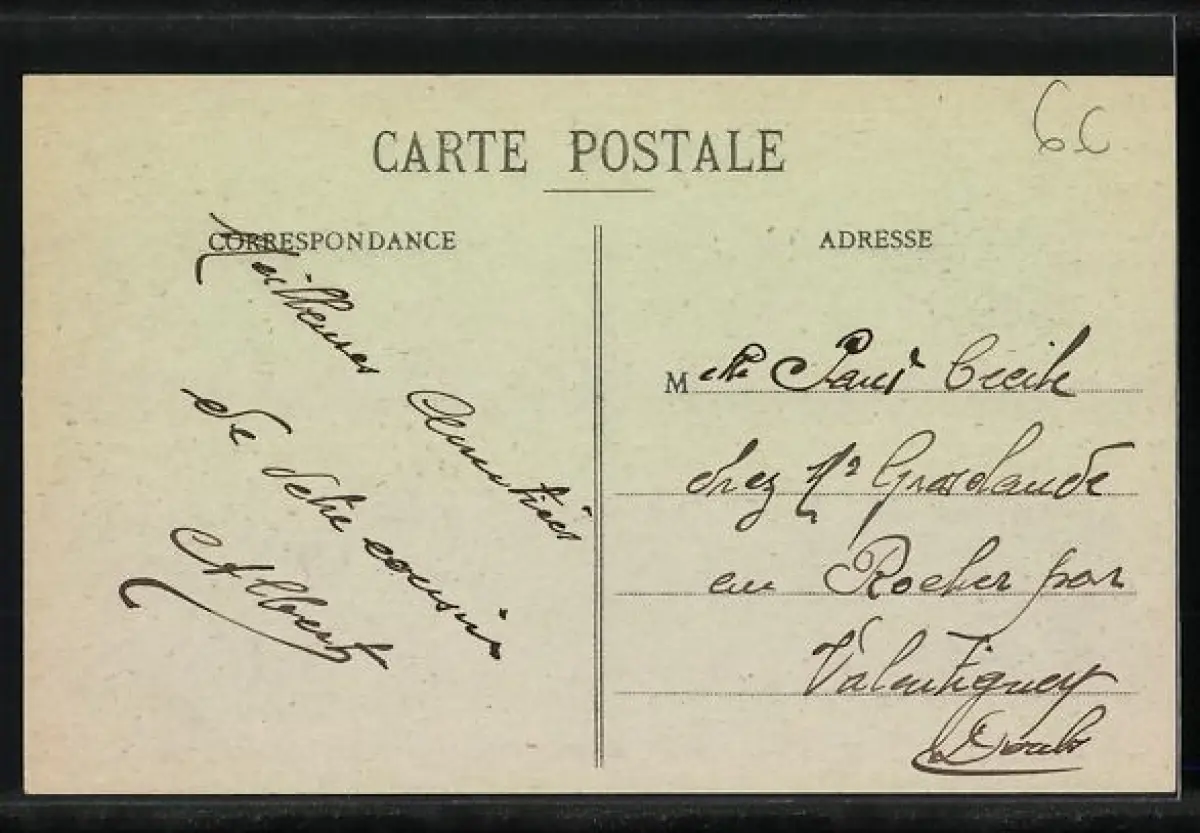 CARTE POSTALE
66
CORRESPONDANCE
Meilleures
Amitiés
de votre cousin
Albert
ADRESSE
Melle Cécile
chez Mr Grosclaude
au Rocher par
Valentigney
Doubs